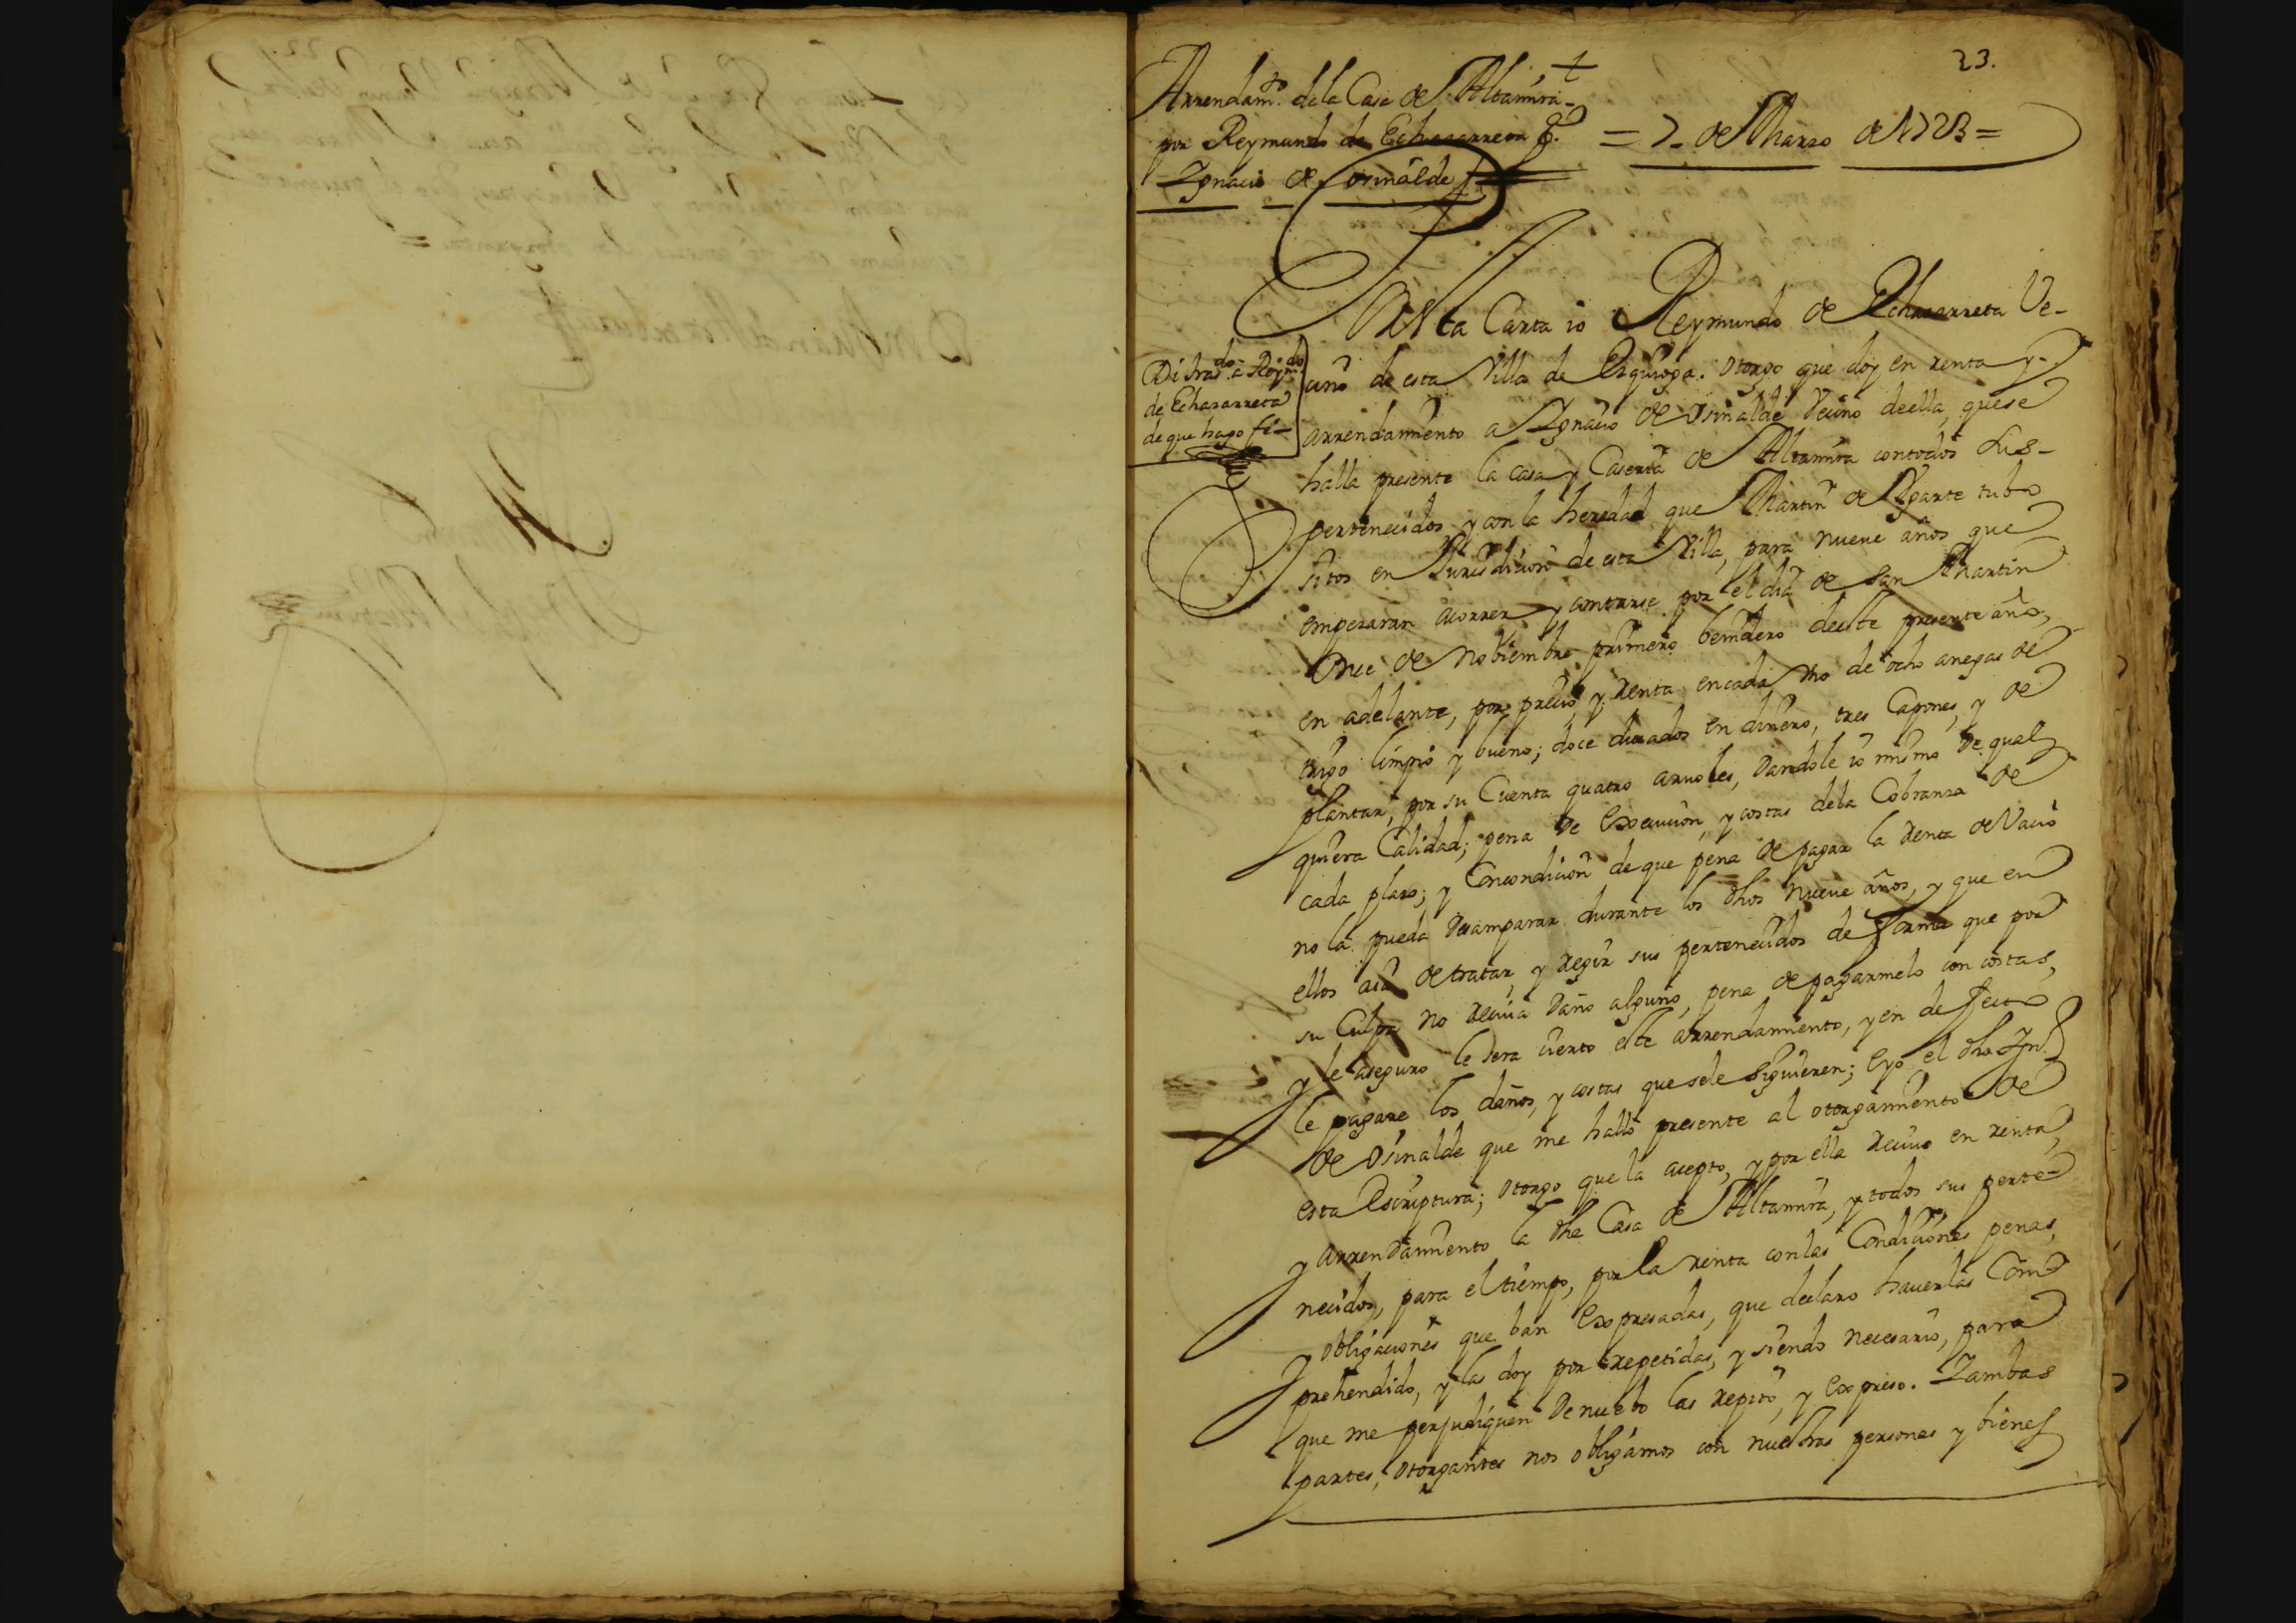 23.
+
Arrendam.to dela Casa de Altamira
por Reymundo de Echazarreta a
Ignacio de Osinalde
= 7 de Marzo de 1723 =
En esta Carta io Reymundo de Echazarreta Ve-
cino de esta Villa de Ezquioga: otorgo que doy en renta y
arrendamiento a Ygnacio de Osinalde Vecino deella, quese
halla presente la casa y Caseria de Altamira contodos sus
pertenecidos, y con la heredad que Martin de Ygarte tubo
sitos en Jurisdicion de esta Villa, para nueve años que
empezaran acorrer y contarse por el dia de San Martin
Once de Nobiembre primero benidero deeste presente año,
en adelante, por precio y Renta encada Uno de ocho anegas de
trigo limpio y bueno; doce ducados en dinero, tres Capones, y de
plantar por su Cuenta quatro arvoles, Dandole io mismo de qual
quiera Calidad; pena de Execucion, y costas dela Cobranza de
cada plazo; y Concondicion de que pena de pagar la Renta de Vacio
no la pueda Desamparar durante los dhos nueve años, y que en
ellos aia de tratar, y Regir sus pertenecidos de forma que por
su Culpa no Reciva Daño alguno, pena de pagarmelo con costas,
y le aseguro le sera cierto este arrendamiento, y en defecto
le pagare los daños, y costas que sele siguieren; Eyo el dho Ign.o
de Osinalde que me hallo presente al otorgamiento de
esta Escriptura; otorgo que la acepto, y por ella Recivo en renta,
y arrendamiento la dha Casa de Altamira, y todos sus perte-
necidos, para el tiempo, por la renta con las Condiciones penas,
obligaciones que ban Expresadas, que declaro haverlas Com
prehendido, y las doy por repetidas, y siendo necesario, para
que me perjudiquen Denuebo las repito, y Expreso. Yambas
partes, otorgantes nos obligamos con nuestras personas y bienes
Di tras.do a Reym.do
de Echazarreta
de que hago fe